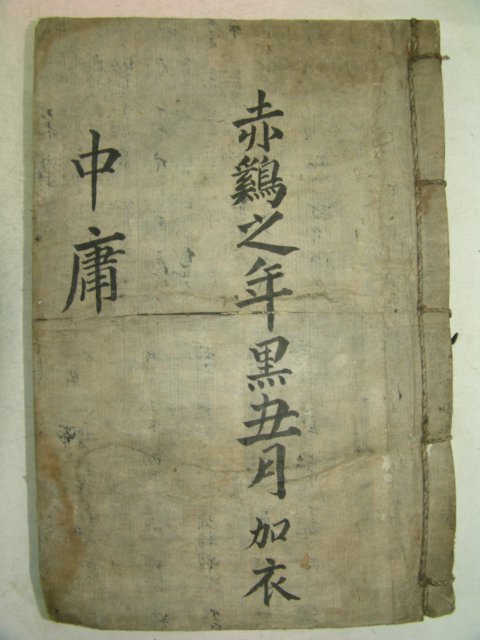 赤鷄之年黑丑月加衣
中庸